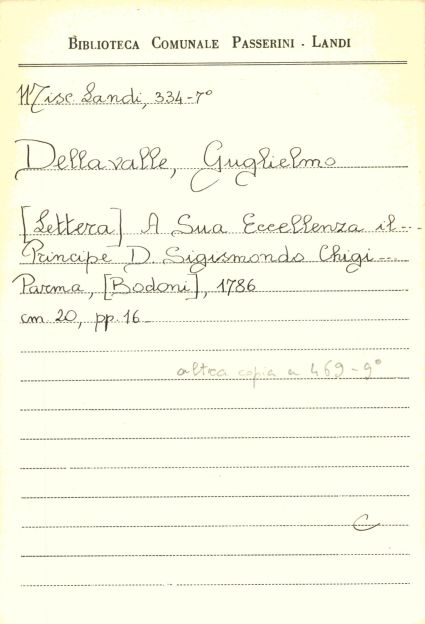 BIBLIOTECA COMUNALE PASSERINI - LANDI
Misc Landi, 334-7°
Dellavalle, Guglielmo
[Lettera] A Sua Eccellenza il...
Principe D. Sigismondo Chigi...
Parma, [Bodoni], 1786
cm 20, pp. 16_
altra copia a 469-9°
C